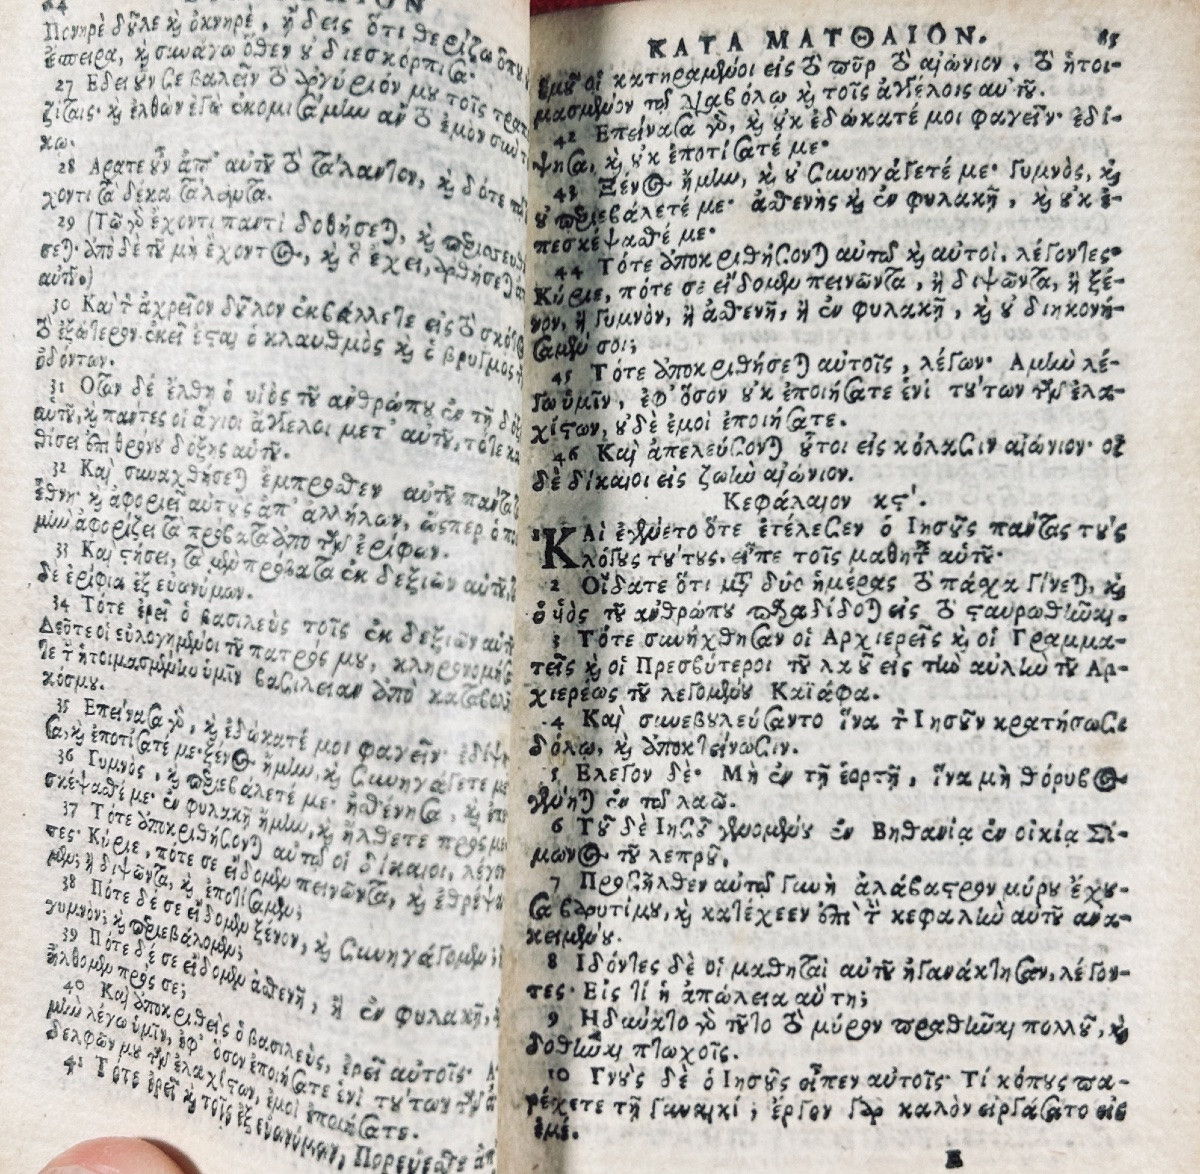 Πονηρὲ δοῦλε καὶ ὀκνηρέ, ᾔδεις ὅτι θερίζω ὅπου
ἔσπειρα, καὶ συνάγω ὅθεν οὐ διεσκόρπισα·
27 Εδει οὖν σε βαλεῖν τὸ ἀργύριόν μου τοῖς τραπε
ζίταις· καὶ ἐλθὼν ἐγὼ ἐκομισάμην ἂν τὸ ἐμὸν σὺν τό
κῳ.
28 Αρατε οὖν ἀπ' αὐτοῦ τὸ τάλαντον, καὶ δότε τῷ
χοντι τὰ δέκα τάλαντα.
29 (Τῷ γὰρ ἔχοντι παντὶ δοθήσεται, καὶ περισσευθή
σεται· ἀπὸ δὲ τοῦ μὴ ἔχοντος, καὶ ὃ ἔχει, ἀρθήσεται ἀπ
αὐτοῦ.)
30 Καὶ τὸν ἀχρεῖον δοῦλον ἐκβάλλετε εἰς τὸ σκότος
τὸ ἐξώτερον. ἐκεῖ ἔσται ὁ κλαυθμὸς καὶ ὁ βρυγμὸς τ
ὀδόντων.
31 Οταν δὲ ἔλθῃ ὁ υἱὸς τοῦ ἀνθρώπου ἐν τῇ δόξῃ
αὑτοῦ, καὶ πάντες οἱ ἅγιοι ἄγγελοι μετ' αὐτοῦ, τότε κα
θίσει ἐπὶ θρόνου δόξης αὑτοῦ.
32 Καὶ συναχθήσεται ἔμπροσθεν αὐτοῦ πάντα τὰ
ἔθνη· καὶ ἀφοριεῖ αὐτοὺς ἀπ' ἀλλήλων, ὥσπερ ὁ ποι
μὴν ἀφορίζει τὰ πρόβατα ἀπὸ τῶν ἐρίφων.
33 Καὶ στήσει, τὰ μὲν πρόβατα ἐκ δεξιῶν αὑτοῦ, τὰ
δὲ ἐρίφια ἐξ εὐωνύμων.
34 Τότε ἐρεῖ ὁ βασιλεὺς τοῖς ἐκ δεξιῶν αὑτοῦ
Δεῦτε οἱ εὐλογημένοι τοῦ πατρός μου, κληρονομήσα
τε τὴν ἡτοιμασμένην ὑμῖν βασιλείαν ἀπὸ καταβολῆς
κόσμου.
35 Επείνασα γὰρ, καὶ ἐδώκατέ μοι φαγεῖν· ἐδίψη
σα, καὶ ἐποτίσατέ με· ξένος ἤμην, καὶ συνηγάγετέ με
36 Γυμνὸς, καὶ περιεβάλετέ με· ἠσθένησα, καὶ ἐπε
σκέψασθέ με· ἐν φυλακῇ ἤμην, καὶ ἤλθετε πρός με
37 Τότε ἀποκριθήσονται αὐτῷ οἱ δίκαιοι, λέγον
τες· Κύριε, πότε σε εἴδομεν πεινῶντα, καὶ ἐθρέψα
μεν; ἢ διψῶντα, καὶ ἐποτίσαμεν;
38 Πότε δέ σε εἴδομεν ξένον, καὶ συνηγάγομεν; ἢ
γυμνὸν; καὶ περιεβάλομεν;
39 Πότε δέ σε εἴδομεν ἀσθενῆ, ἢ ἐν φυλακῇ, κ
ἤλθομεν πρός σε;
40 Καὶ ἀποκριθεὶς ὁ βασιλεὺς, ἐρεῖ αὐτοῖς· Α
μὴν λέγω ὑμῖν, ἐφ' ὅσον ἐποιήσατε ἑνὶ τούτων τῶν ἀ
δελφῶν μου τῶν ἐλαχίστων, ἐμοὶ ἐποιήσατε.
41 Τότε ἐρεῖ καὶ τοῖς ἐξ εὐωνύμων, Πορεύεσθε ἀπ
ΚΑΤΑ ΜΑΤΘΑΙΟΝ. 65
ἐμοῦ οἱ κατηραμένοι εἰς τὸ πῦρ τὸ αἰώνιον, τὸ ἡτοι-
μασμένον τῷ Διαβόλῳ καὶ τοῖς ἀγγέλοις αὐτοῦ.
42 Επείνασα γὰρ, καὶ οὐκ ἐδώκατέ μοι φαγεῖν· ἐδί-
ψησα, καὶ οὐκ ἐποτίσατέ με·
43 Ξένος ἤμην, καὶ οὐ συνηγάγετέ με· γυμνὸς, καὶ
οὐ περιεβάλετέ με· ἀσθενὴς καὶ ἐν φυλακῇ, καὶ οὐκ ἐ-
πεσκέψασθέ με·
44 Τότε ἀποκριθήσονται αὐτῷ καὶ αὐτοὶ, λέγοντες·
Κύριε, πότε σε εἴδομεν πεινῶντα, ἢ διψῶντα, ἢ ξέ-
νον, ἢ γυμνὸν, ἢ ἀσθενῆ, ἢ ἐν φυλακῇ, καὶ οὐ διηκονή-
σαμέν σοι;
45 Τότε ἀποκριθήσεται αὐτοῖς, λέγων· Αμὴν λέ-
γω ὑμῖν, ἐφ' ὅσον οὐκ ἐποιήσατε ἑνὶ τούτων τῶν ἐλα-
χίστων, οὐδὲ ἐμοὶ ἐποιήσατε.
46 Καὶ ἀπελεύσονται οὗτοι εἰς κόλασιν αἰώνιον· οἱ
δὲ δίκαιοι εἰς ζωὴν αἰώνιον.
Κεφάλαιον κϛ'.
ΚΑὶ ἐγένετο ὅτε ἐτέλεσεν ὁ Ιησοῦς πάντας τοὺς
λόγους τούτους. εἶπε τοῖς μαθηταῖς αὑτοῦ·
2 Οἴδατε ὅτι μετὰ δύο ἡμέρας τὸ πάσχα γίνεται, καὶ
ὁ υἱὸς τοῦ ἀνθρώπου παραδίδοται εἰς τὸ σταυρωθῆναι.
3 Τότε συνήχθησαν οἱ Αρχιερεῖς καὶ οἱ Γραμμα-
τεῖς καὶ οἱ Πρεσβύτεροι τοῦ λαοῦ εἰς τὴν αὐλὴν τοῦ Αρ-
χιερέως τοῦ λεγομένου Καϊάφα.
4 Καὶ συνεβουλεύσαντο ἵνα τὸν Ιησοῦν κρατήσωσι
δόλῳ, καὶ ἀποκτείνωσιν.
5 Ελεγον δέ· Μὴ ἐν τῇ ἑορτῇ, ἵνα μὴ θόρυβος
γένηται ἐν τῷ λαῷ.
6 Τοῦ δὲ Ιησοῦ γενομένου ἐν Βηθανίᾳ ἐν οἰκίᾳ Σί-
μωνος τοῦ λεπροῦ,
7 Προσῆλθεν αὐτῷ γυνὴ ἀλάβαστρον μύρου ἔχου-
σα βαρυτίμου, καὶ κατέχεεν ἐπὶ τὴν κεφαλὴν αὐτοῦ ἀνα-
κειμένου.
8 Ιδόντες δὲ οἱ μαθηταὶ αὐτοῦ ἠγανάκτησαν, λέγον-
τες· Εἰς τί ἡ ἀπώλεια αὕτη;
9 Ηδύνατο γὰρ τοῦτο τὸ μύρον πραθῆναι πολλοῦ, καὶ
δοθῆναι πτωχοῖς.
10 Γνοὺς δὲ ὁ Ιησοῦς εἶπεν αὐτοῖς· Τί κόπους πα-
ρέχετε τῇ γυναικί; ἔργον γὰρ καλὸν εἰργάσατο εἰς
ἐμέ.
E